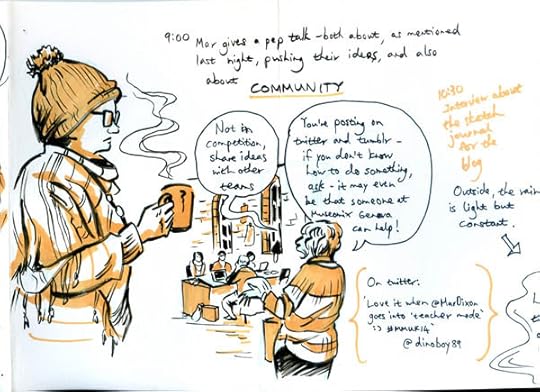 9:00 Mar gives a pep talk - both about, as mentioned
last night, pushing their ideas, and also
about COMMUNITY
Not in
competition,
share ideas
with other
teams
You're posting on
twitter and tumblr -
if you don't know
how to do something,
ask - it may even
be that someone at
Museomix Geneva
can help!
10:30
Interview about
the sketch
journal
for the
blog
Outside, the rain
is light but
constant.
On twitter:
'Love it when @MarDixon
goes into 'teacher mode'
:) #MMUK14'
@dinoboy89